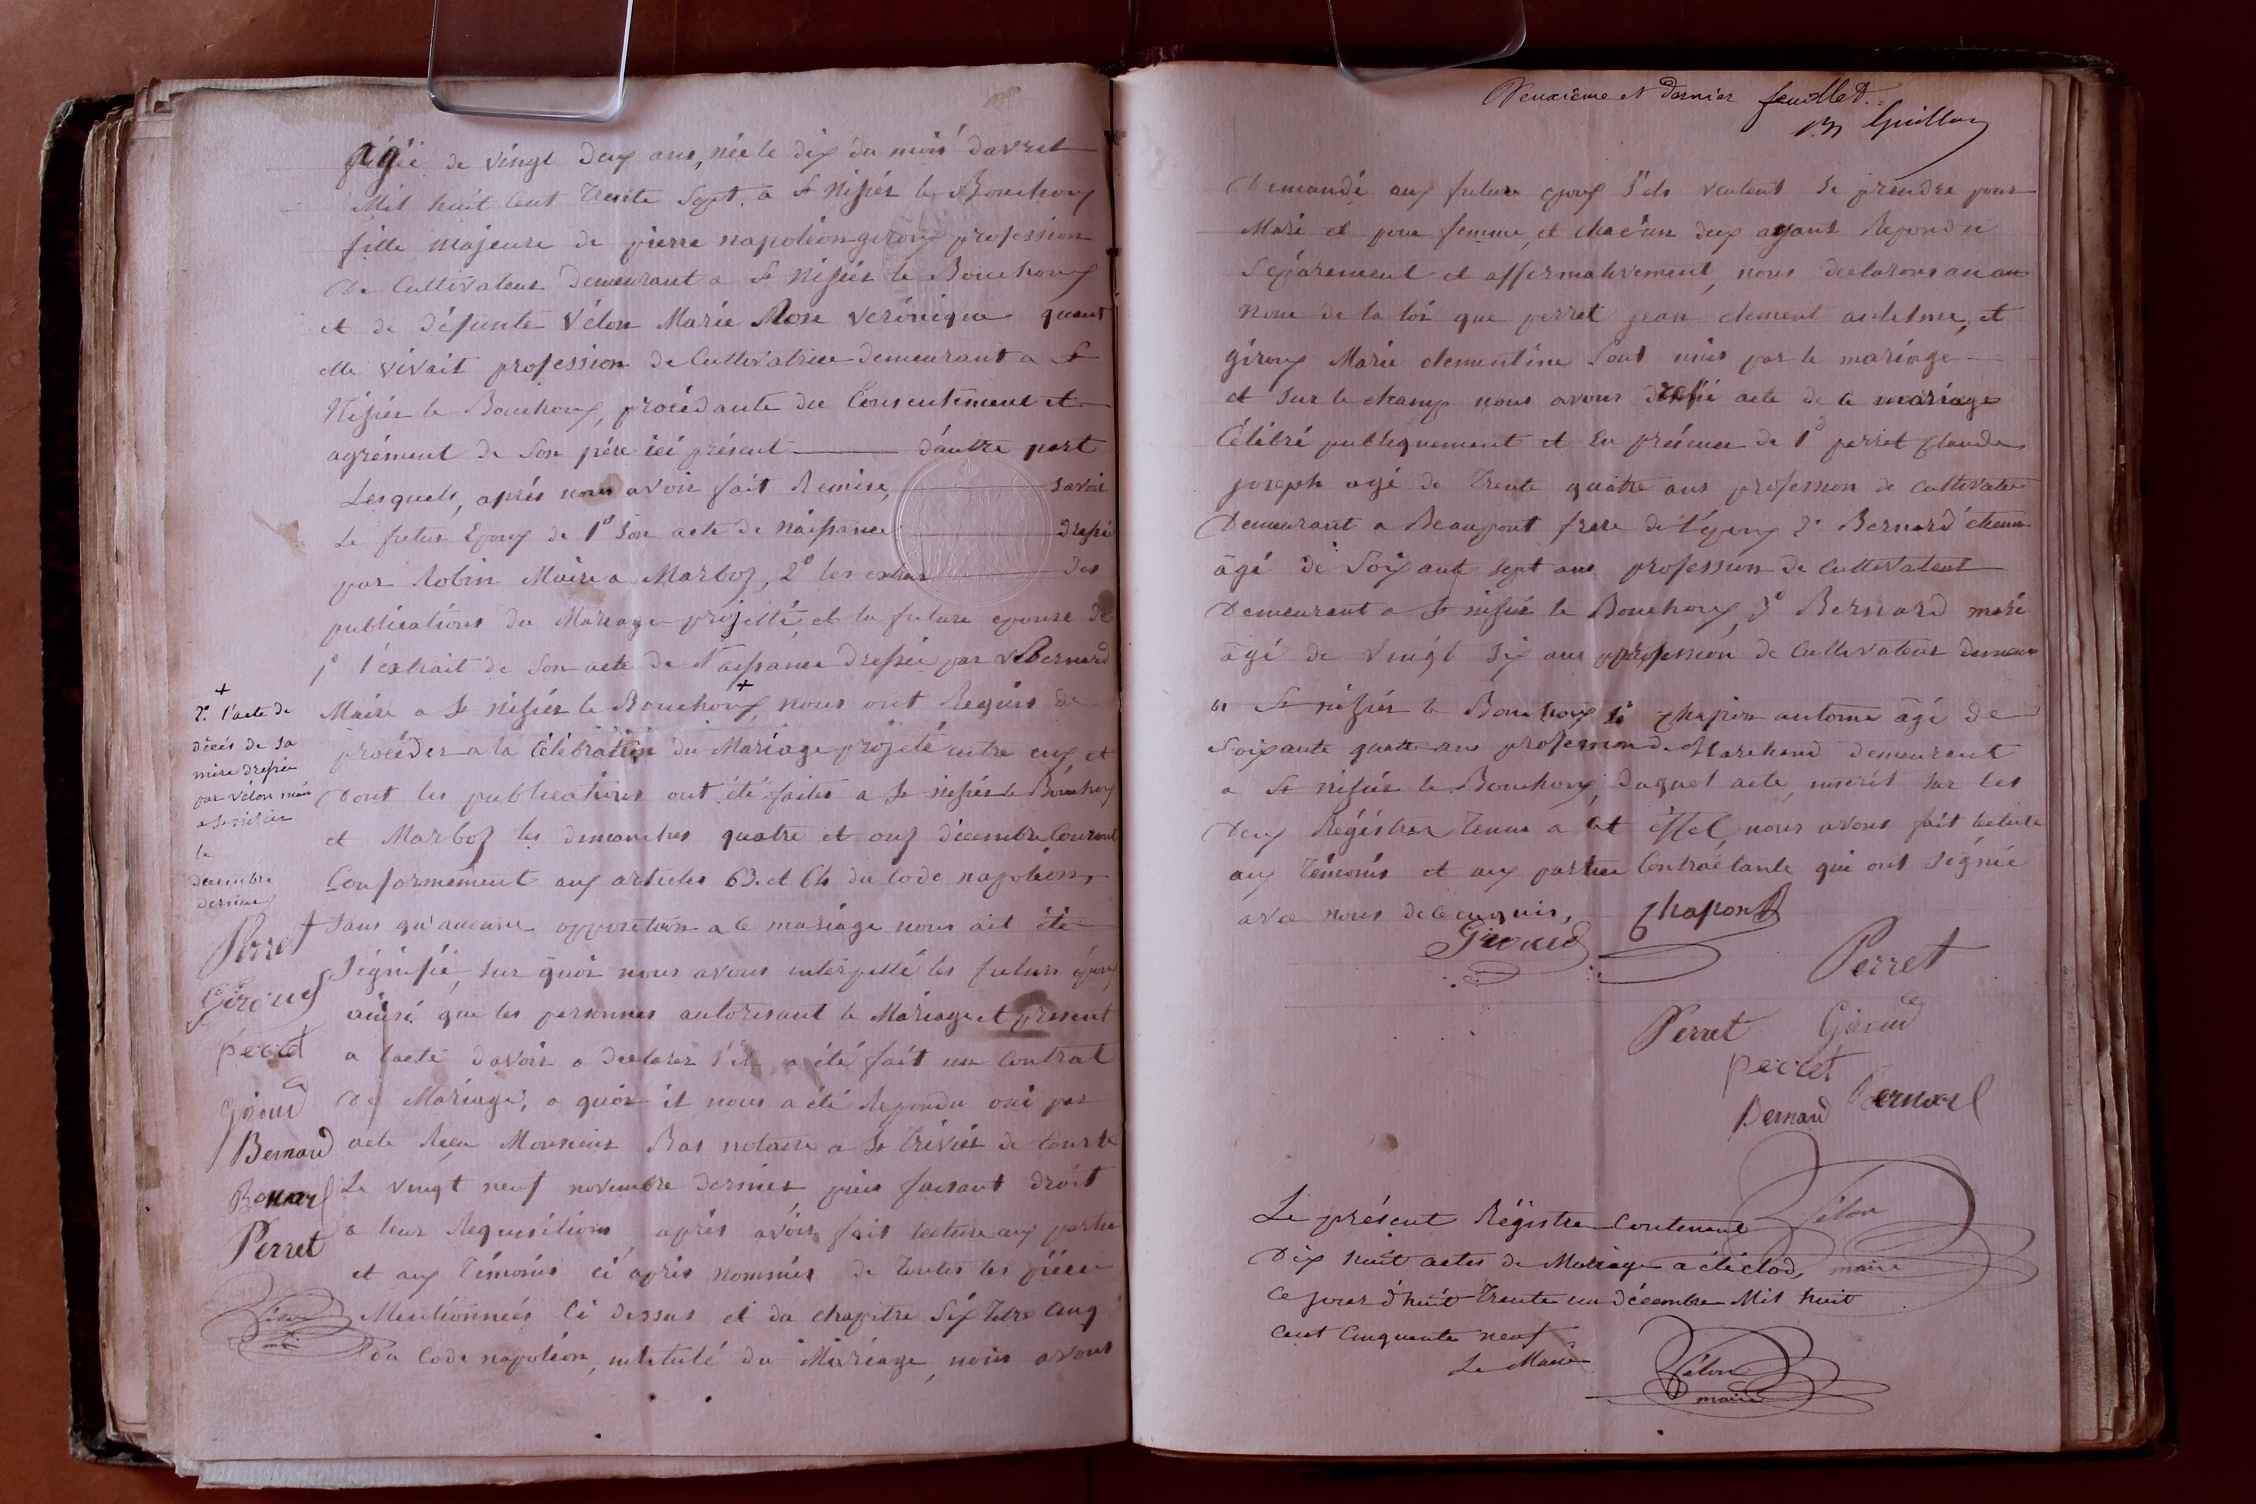 agée de vingt deux ans, née le dix du mois davril
Mil huit Cent Trente Sept. a St Nisier le Bouchoux
fille Majeure de pierre napoléon giroux profession
De Cultivateur demeurant a St Nisier le Bouchoux
et de défunte Vélon Marie Rose Véronique quant
elle vivait profession de Cultivatrice demeurant a St
Nisier le Bouchoux, procédante du Consentement et
agrément de Son père ici présent ——— d'autre part
Lesquels, après nous avoir fait Remise, ——— Savoir
Le futur Epoux de 1° Son acte de Naissance ——— dressé
par Robin Maire a Marboz, 2° les extraits ——— des
publications du Mariage projetté, et la future epouse de
1° l'extrait de Son acte de Naissance dressée par Bernard
Maire a St Nisier le Bouchoux + nous ont Requis de
procéder a la Célébration du Mariage projeté entre eux, et
Dont les publications ont été faites a St nisier le Bouchoux
et Marboz les dimanches quatre et onz décembre Courant
Conformément aux articles 63. et 64 du Code napoléon,
Sans qu'aucune opposition a ce mariage nous ait été
Signifié, Sur quoi nous avons interpellé les futurs époux
ainsi que les personnes autorisant le Mariage et présent
a l'acte davoir a declarer s'il a été fait un Contrat
De Mariage, a quoi il nous a été Repondu oui par
acte Recu Monsieur Bas notaire a St Trivier de Courte
Le vingt neuf novembre dernier, puis faisant droit
a leur Requisition, après avoir fait lecture aux partie
et aux Témoins ci après nommés de toutes les pièces
Mentionnées Ci dessus et du chapitre Six titre Cinq
du Code napoléon, intitulé du Mariage, nous avons
+
2° l'acte de
décès de sa
mère dressée
par Vélon maire
a St nisier
le
décembre
dernier
Perret
Giroud
perret
Giroud
Bernard
Bernard
Perret
Vélon
Deuxième et dernier feuillet.
Guillon
Demandé aux future époux S'ils veulent Se prendre pour
Mari et pour femme, et chacun deux ayant Repondu
Séparement et affirmativement, nous declarons au
nom de la loi que perret jean clement anthelme, et
giroux Marie clementine Sont unis par le mariage
et Sur le champ nous avons dressé acte de ce mariage
Célébré publiquement et En présence de 1° perret Claude
joseph agé de Trente quatre ans profession de cultivateur
Demeurant a Beaupont frere de l'époux 2° Bernard
âgé de Soixante Sept ans profession de Cultivateur
Demeurant a St nisier le Bouchoux, 3° Bernard
âgé de Vingt Six ans profession de Cultivateur demeur
a St nisier le Bouchoux 4° Chapon antoine âgé de
Soixante quatre ans profession de Marchand demeurant
a St nisier le Bouchoux, Duquel acte, inscrit Sur les
Deux Régistres Tenus a Cet Effet, nous avons fait lecture
aux Témoins et aux parties Contractante qui ont Signée
avec nous de ce enquis,
Chapon
Giroud
Perret
Perret Giroud
perret
Bernard Bernard
Vélon
maire
Le présent Régistre Contenant
Dix huit actes de Mariage a été clos,
Ce jour d'huit Trente un décembre Mil huit
Cent Cinquante neuf
Le Maire
Vélon
maire